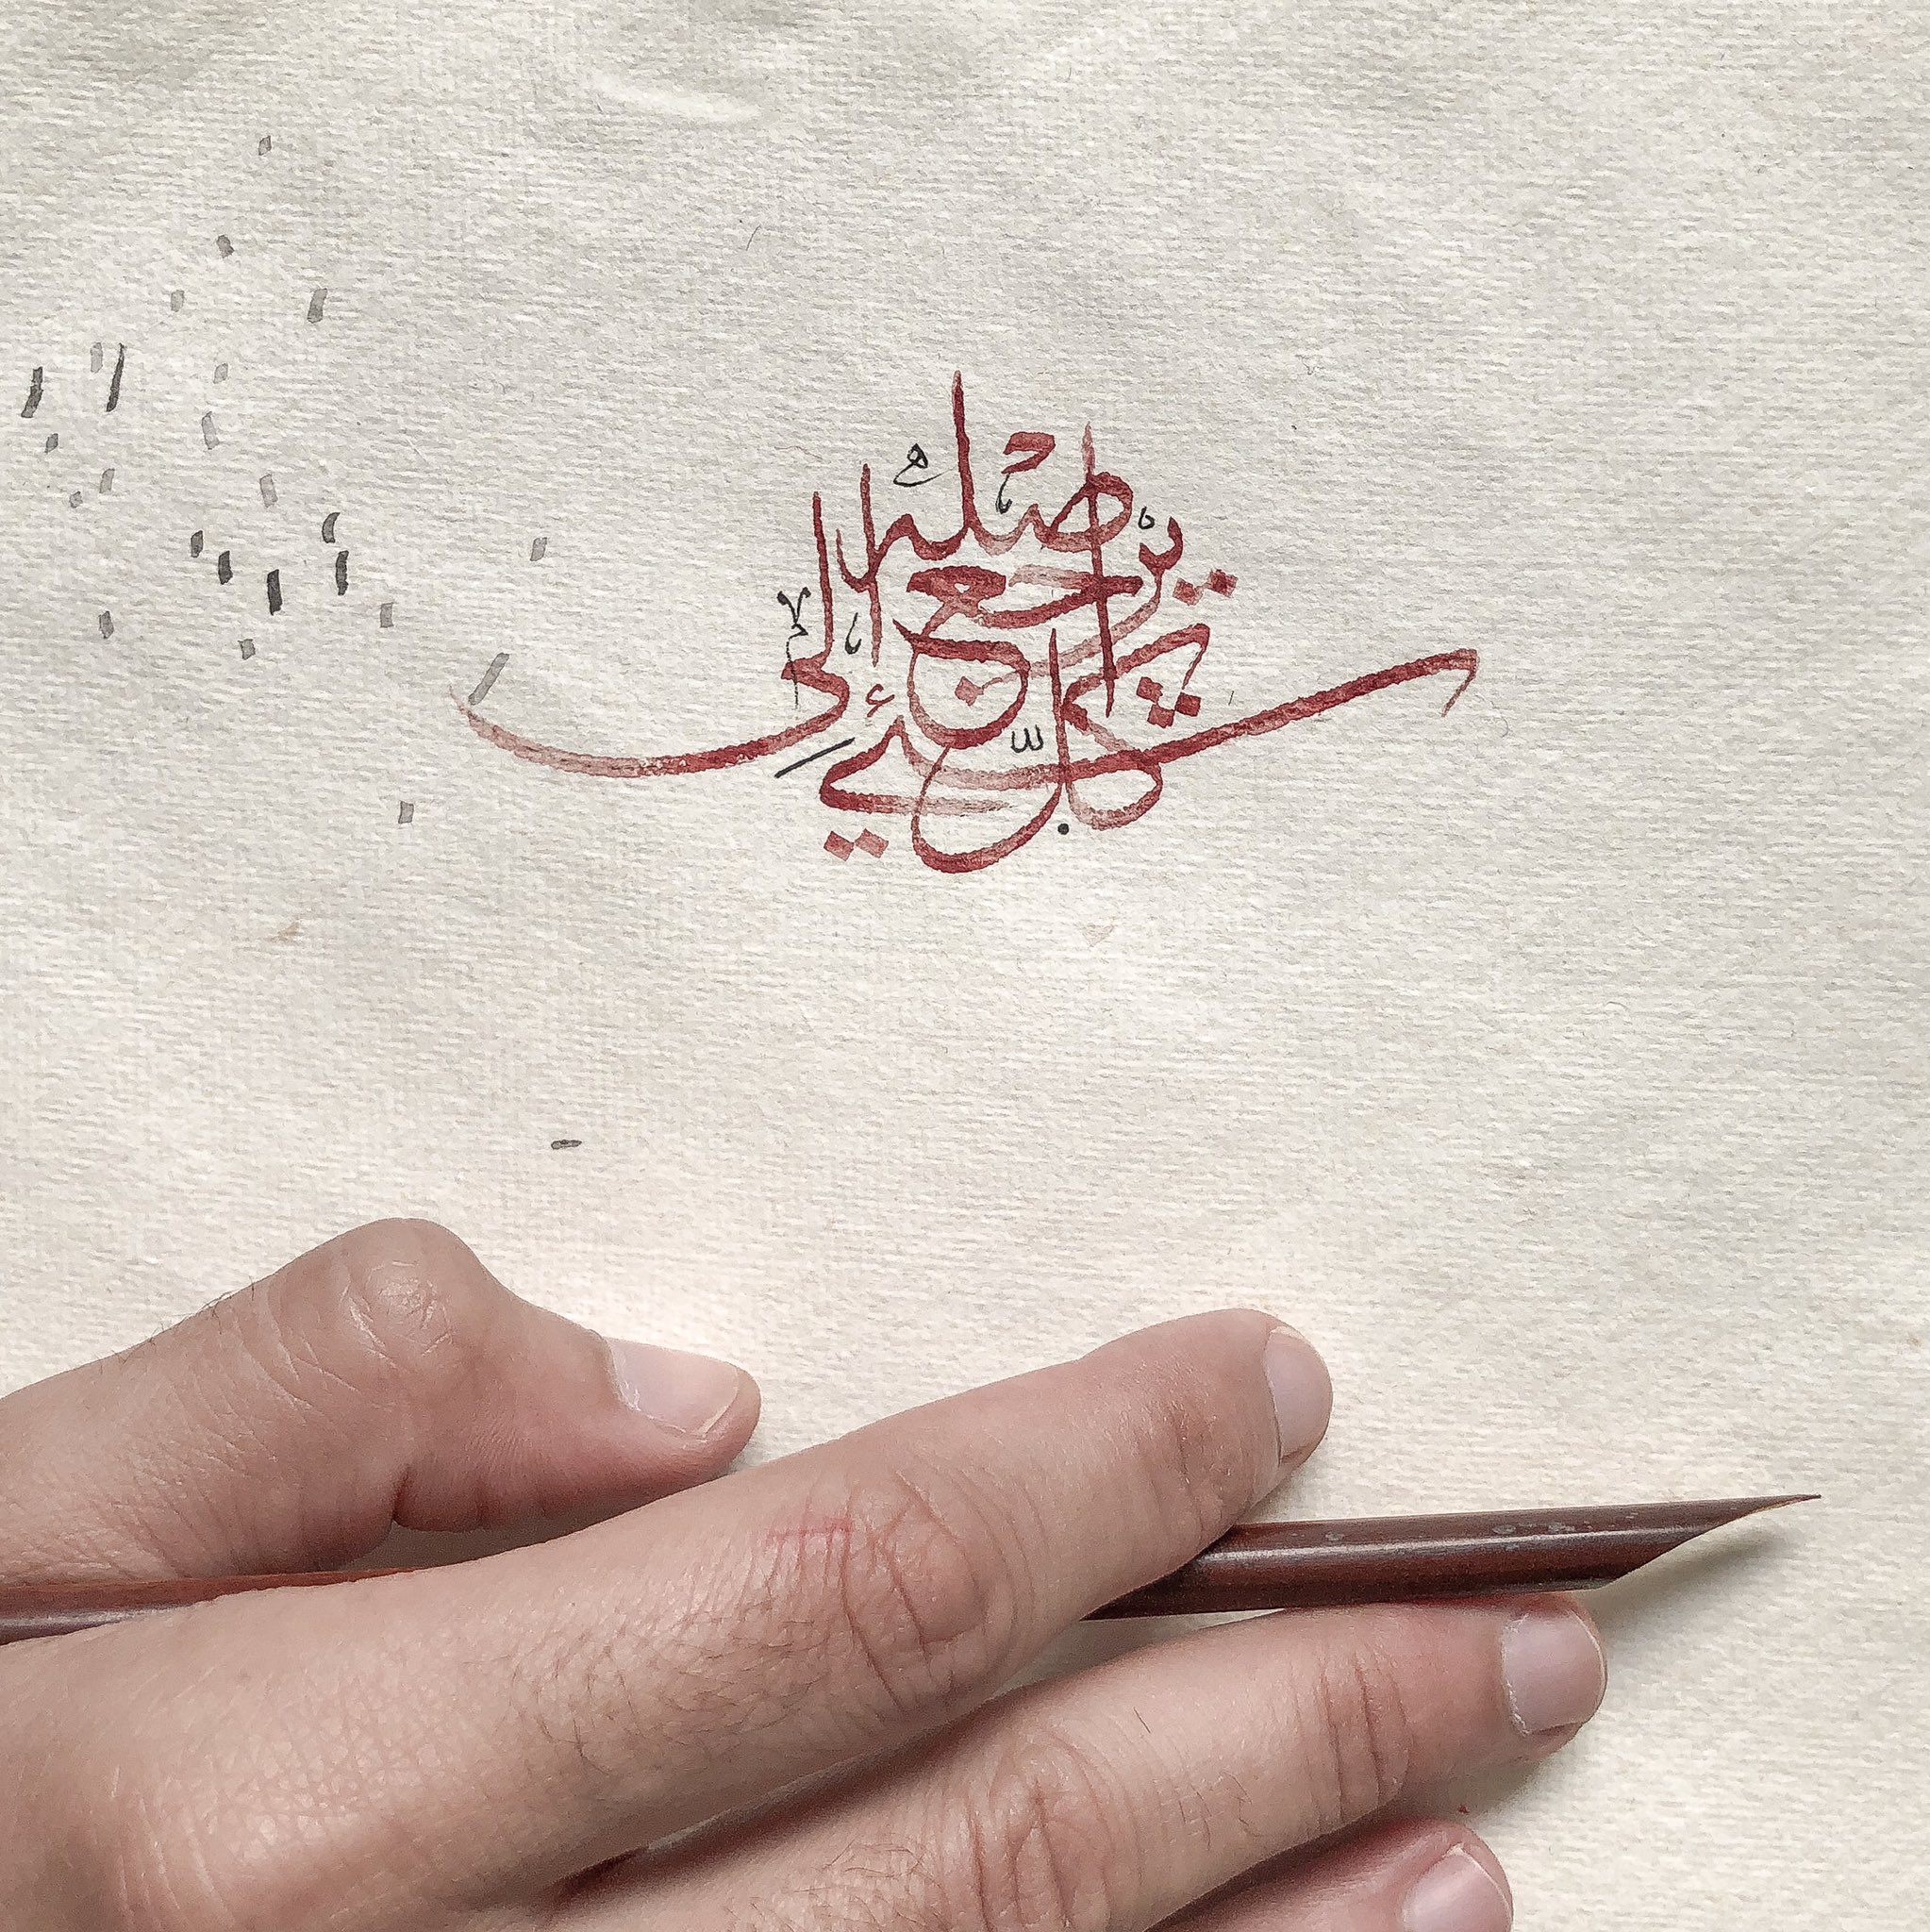 كلّ شيء يرجع إلى أصله